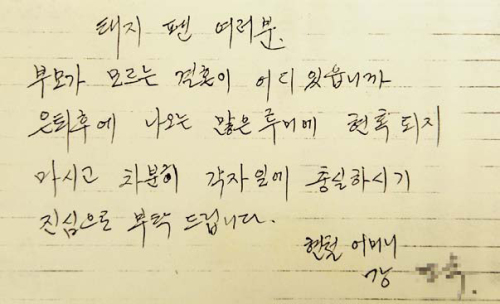 태지 펜 여러분.
부모가 모르는 결혼이 어디 있읍니까
은퇴후에 나오는 많은 루머에 현혹 되지
마시고 차분히 각자일에 충실하시기
진심으로 부탁 드립니다.
현철 어머니
강